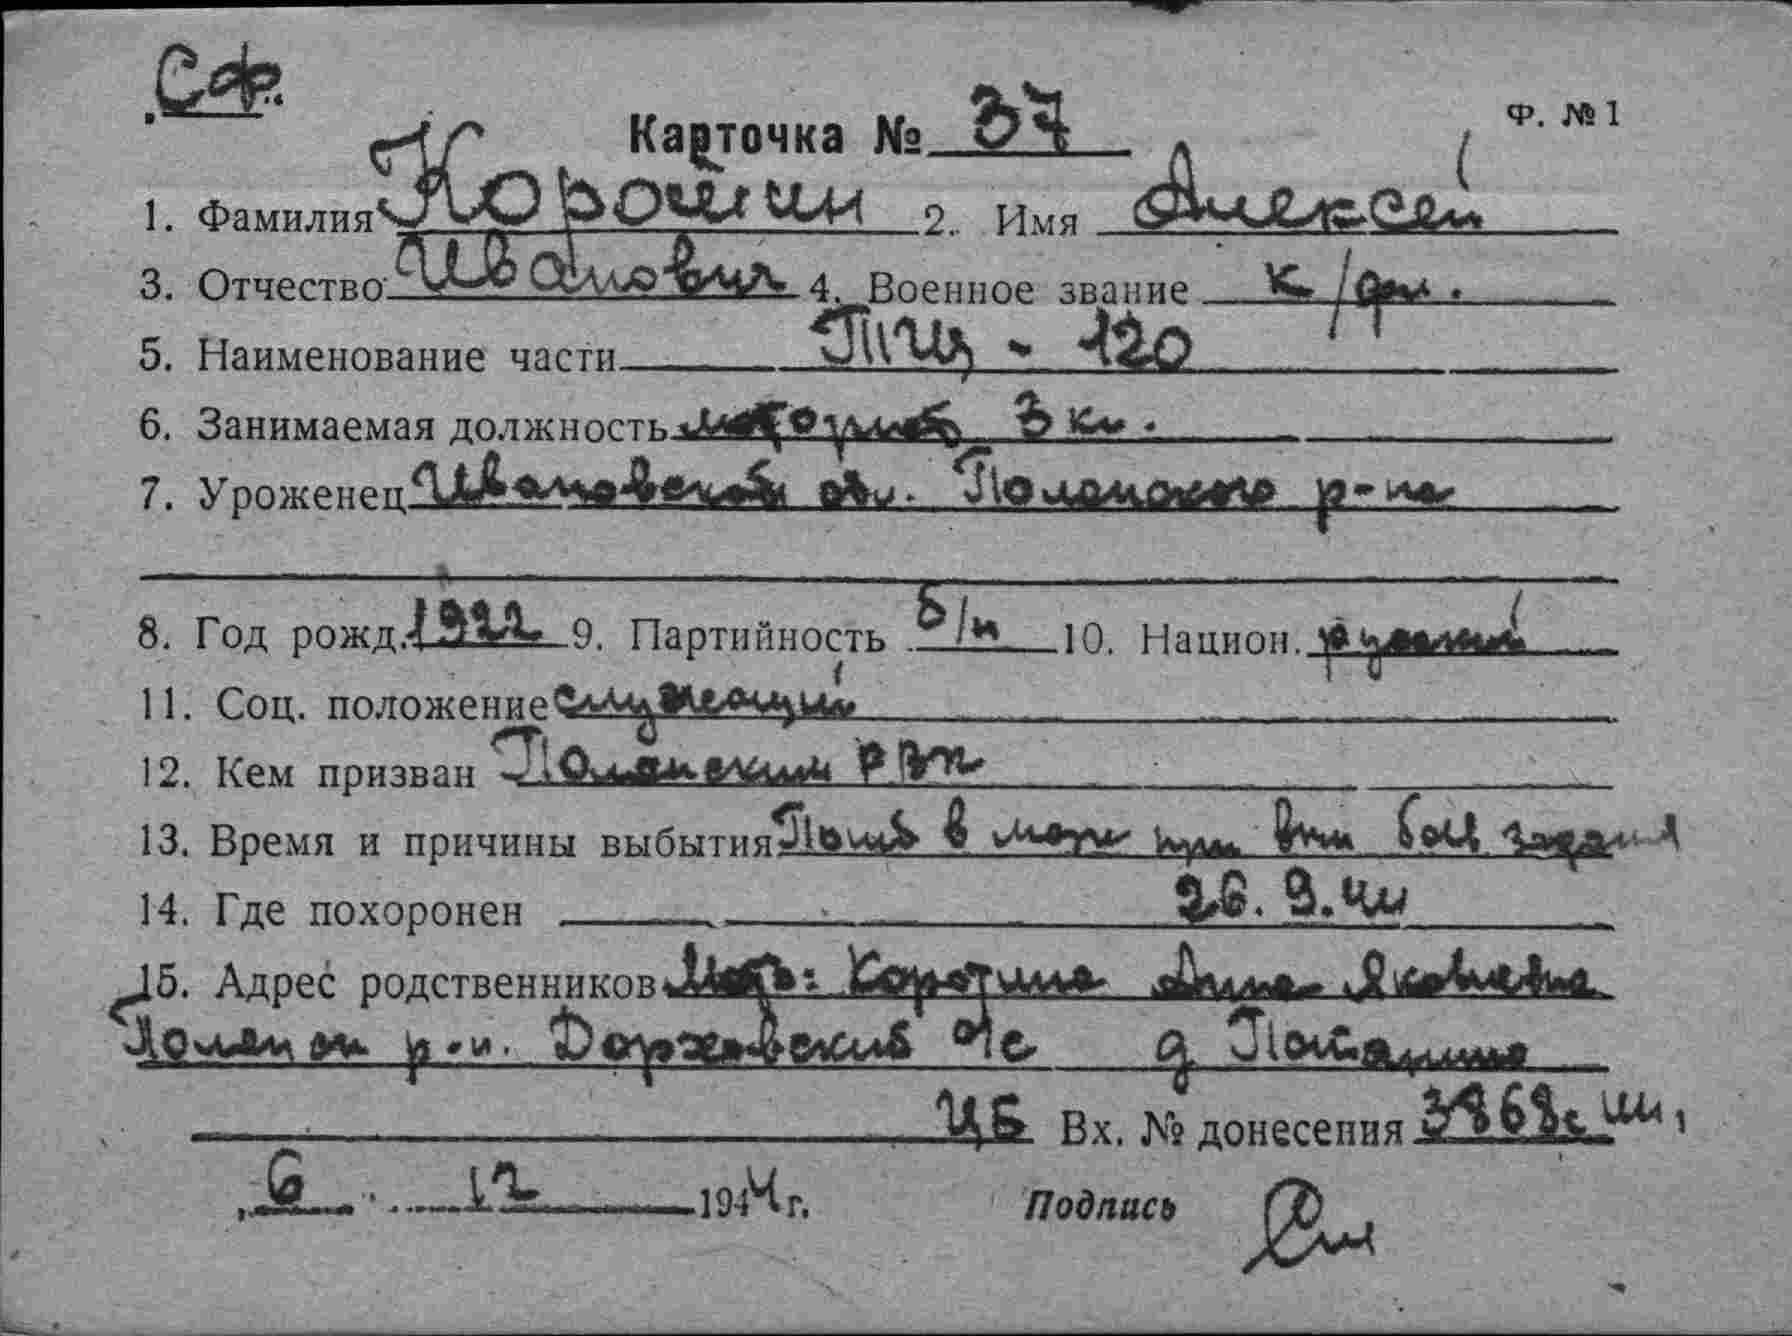 Сф.
Ф. № 1
Карточка № 37
1. Фамилия Корошин 2. Имя Алексей
3. Отчество Иванович 4. Военное звание к/фл.
5. Наименование части ТЩ - 120
6. Занимаемая должность 3 кл.
7. Уроженец Ивановской обл. р-на
8. Год рожд. 1922 9. Партийность б/п 10. Национ. русский
11. Соц. положение служащий
12. Кем призван РВК
13. Время и причины выбытия Погиб в море при вып боев задания
14. Где похоронен 26.9.44
15. Адрес родственников Мать: Анна Яковлевна
р-н. с/с д
ЦБ Вх. № донесения
6 12 1944 г. Подпись